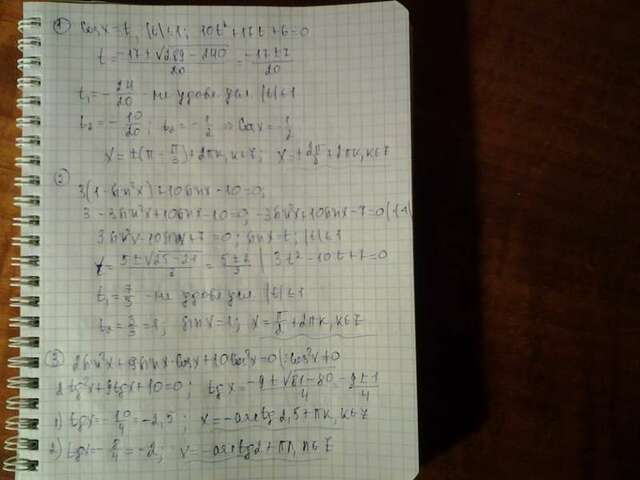 ① cos x = t, |t| ≤ 1, 10t² + 17t + 6 = 0
t = (-17 ± √(289 - 240))/20 = (-17 ± 7)/20
t₁ = -24/20 - не удовл усл |t| ≤ 1
t₂ = -10/20; t₂ = -1/2 => cos x = 1/2
x = ±(π - π/3) + 2πk, k∈Z; x = ±2π/3 + 2πk, k∈Z
② 3(1 - sin²x) + 10sinx - 10 = 0;
3 - 3sin²x + 10sinx - 10 = 0; -3sin²x + 10sinx - 7 = 0 |(-1)
3sin²x - 10sinx + 7 = 0; sinx = t; |t| ≤ 1
t = (5 ± √(25 - 21))/3 = (5 ± 2)/3 | 3t² - 10t + 7 = 0
t₁ = 7/3 - не удовл усл |t| ≤ 1
t₂ = 3/3 = 1; sin x = 1; x = π/2 + 2πk, k∈Z
③ 2sin²x + 9sinx·cosx + 10cos²x = 0 |: cos²x ≠ 0
2tg²x + 9tgx + 10 = 0; tgx = (-9 ± √(81 - 80))/4 = (-9 ± 1)/4
1) tgx = -10/4 = -2,5; x = -arctg2,5 + πk, k∈Z
2) tgx = -8/4 = -2; x = -arctg2 + πn, n∈Z